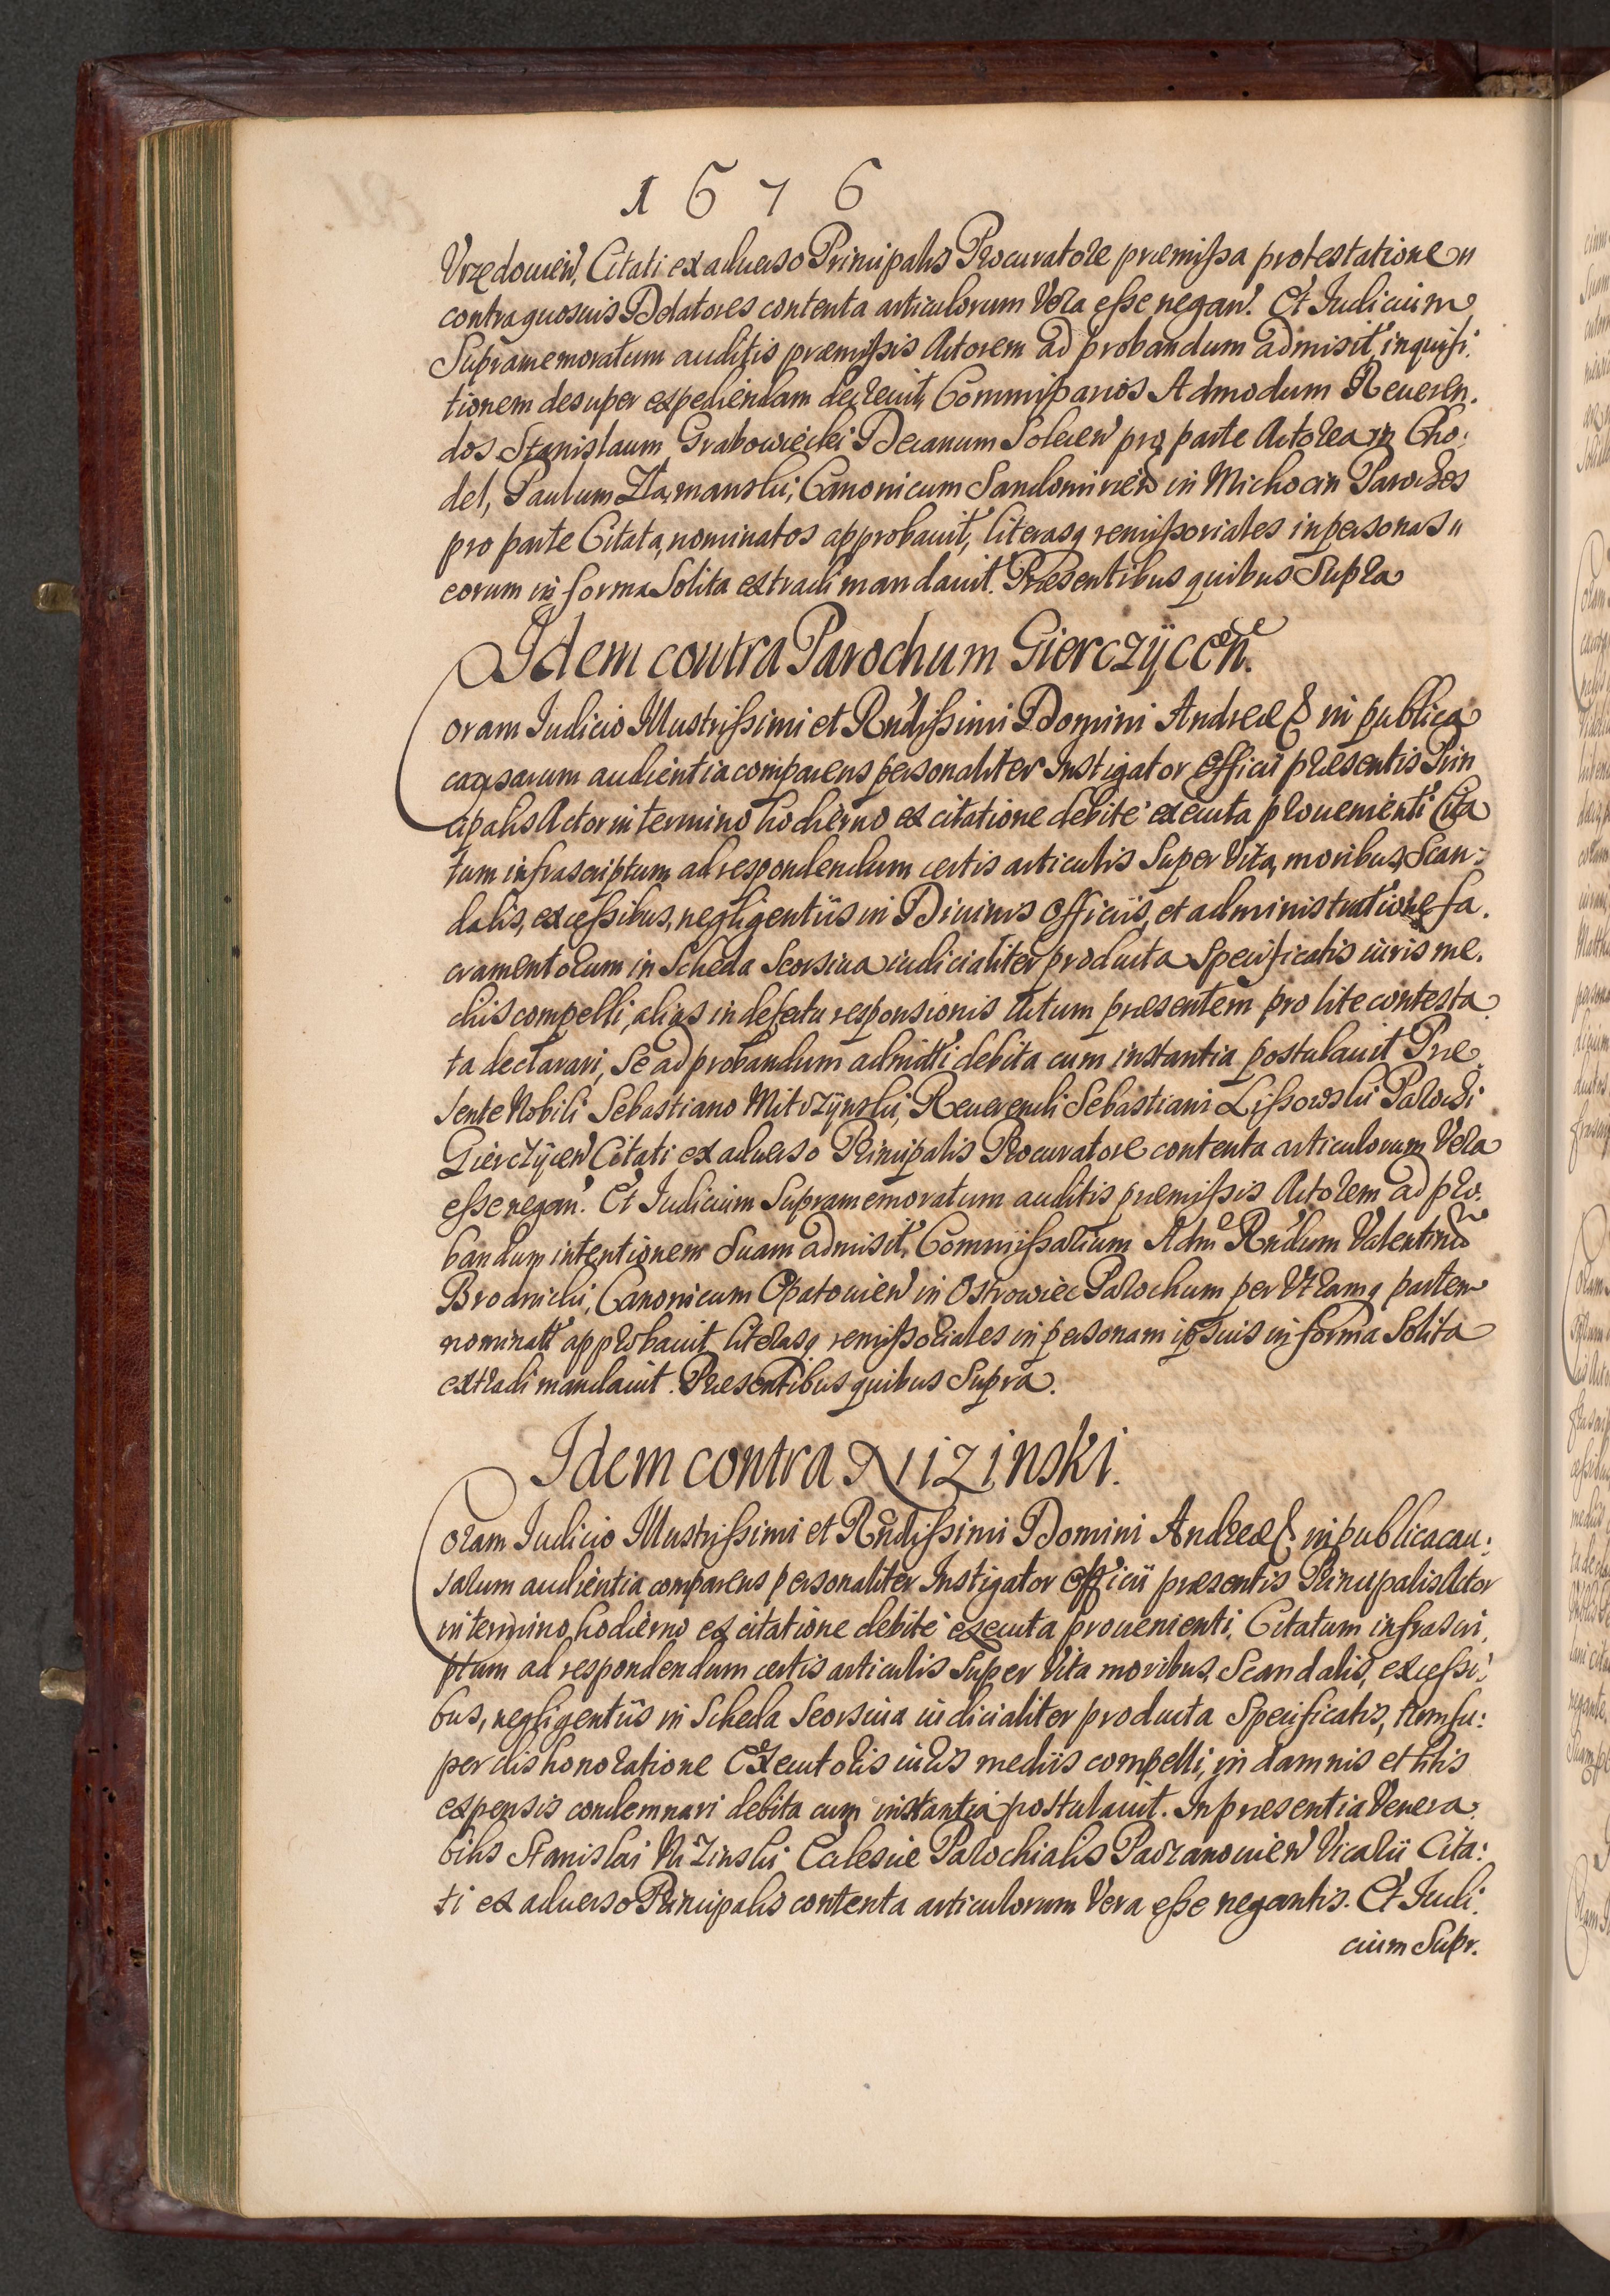 1676
Vrzędouien̄, Citati ex aduerso Principalis Procuratore præmissa protestatione
contra quosuis Delatores contenta articulorum Vera esse negan̄. Et Iudicium
Supramemoratum auditis præmissis Actorem ad probandum admisit, inquisi:
tionem desuper expediendam decreuit, Commissarios Admodum Reueren:
dos Stanislaum Grabowiecki Decanum Solecen̄ pro parte Actorea in Cho:
del, Paulum Złamanski, Canonicum Sandomirien̄ in Michocin Parochos
pro parte Citata, nominatos approbauit, literasq remissoriales in personas
eorum in forma Solita extradi mandauit. Præsentibus quibus Supra
Idem contra Parochum Gierczÿcen̄.
Coram Iudicio Illustrissimi et Rndissimi Domini Andreæ & in publica
causarum audientia comparens personaliter Instigator Officii præsentis Prin
cipalis Actor in termino hodierno ex citatione debite executa prouenienti Cita
tum infrascriptum ad respondendum certis articulis Super Vita, moribus, Scan:
dalis, excessibus, negligentiis in Diuinis Officiis, et administratione sa:
cramentorum in Scheda Seorsiua iudicialiter producta Specificatis iuris me:
diis compelli, alias in defectu responsionis Actum præsentem pro lite contesta
ta declarari, Se ad probandum admitti debita cum instantia postulauit Præ
sente Nobili Sebastiano Mitczÿnski, Reuerendi Sebastiani Lissowski Parochi
Gierczÿcen̄ Citati ex aduerso Principalis Procuratore contenta articulorum Vera
esse negan̄. Et Iudicium Supramemoratum auditis præmissis Actorem ad pro:
bandum intentionem Suam admisit, Commissarium Adm̄ Rndum Valentinū
Brodnicki, Canonicum Opatouien̄ in Ostrowiec Parochum per Vtramq partem
nominatū approbauit literasq remissoriales in personam ipsuis in forma Solita
extradi mandauit. Præsentibus quibus Supra.
Idem contra Nizinski.
Coram Iudicio Illustrissimi et Rndissimi Domini Andreæ & in publica cau:
sarum audientia comparens personaliter Instigator Officii præsentis Principalis Actor
in termino hodierno ex citatione debite executa prouenienti, Citatum infrascri:
ptum ad respondendum certis articulis Super Vita moribus, Scandalis, excessi:
bus, negligentiis in Scheda Seorsiua iudicialiter producta Specificatis, tum su:
per dishonoratione Executoris iuris mediis compelli, in damnis et litis
expensis condemnari debita cum instantia postulauit. In præsentia Venera:
bilis Stanislai Nizinski Eclesiæ Parochialis Pacanouien̄ Vicarii Cita:
ti ex aduerso Principalis contenta articulorum Vera esse negantis. Et Iudi:
cium Supr.